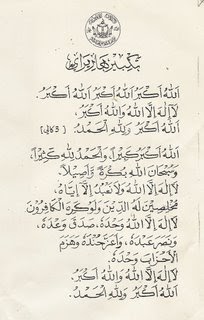 تكبير دهاري راي
اَللهُ أَكْبَرُ اَللهُ أَكْبَرُ اَللهُ أَكْبَرُ.
لَا إِلَهَ إِلَّا اللهُ وَاللهُ أَكْبَرُ.
اَللهُ أَكْبَرُ وَلِلهِ الْحَمْدُ. [٣ كالي]
اَللهُ أَكْبَرُ كَبِيرًا، وَالْحَمْدُ لِلهِ كَثِيرًا،
وَسُبْحَانَ اللهِ بُكْرَةً وَأَصِيلًا.
لَا إِلَهَ إِلَّا اللهُ وَلَا نَعْبُدُ إِلَّا إِيَّاهُ،
مُخْلِصِينَ لَهُ الدِّينَ وَلَوْ كَرِهَ الْكَافِرُونَ
لَا إِلَهَ إِلَّا اللهُ وَحْدَهُ، صَدَقَ وَعْدَهُ،
وَنَصَرَ عَبْدَهُ، وَأَعَزَّ جُنْدَهُ وَهَزَمَ
الْأَحْزَابَ وَحْدَهُ.
لَا إِلَهَ إِلَّا اللهُ وَاللهُ أَكْبَرُ.
اَللهُ أَكْبَرُ وَلِلهِ الْحَمْدُ.